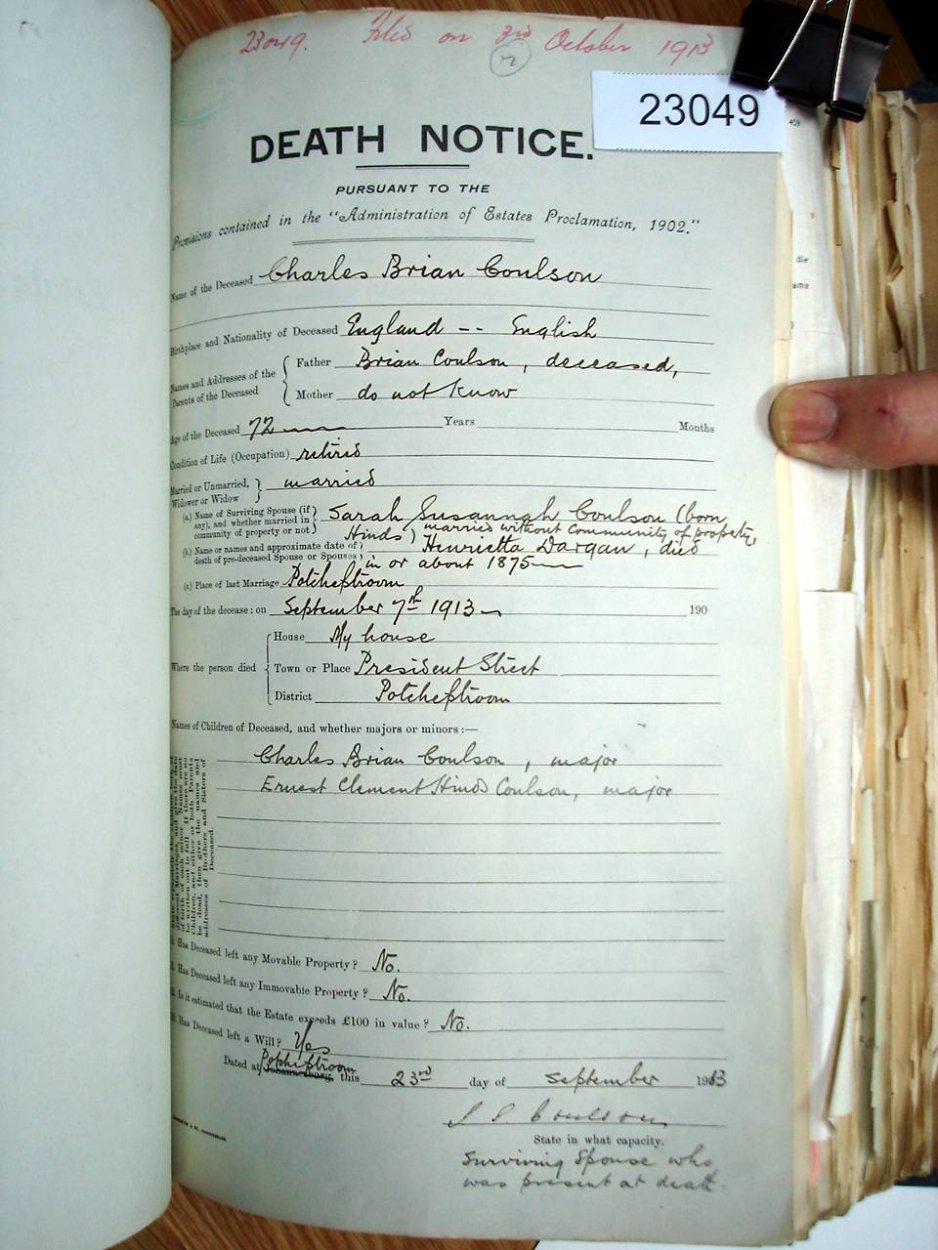 23049. Filed on 3rd October 1913
23049
DEATH NOTICE.
PURSUANT TO THE
Provisions contained in the "Administration of Estates Proclamation, 1902."
Name of the Deceased Charles Brian Coulson
Birthplace and Nationality of Deceased England -- English
Names and Addresses of the Parents of the Deceased
Father Brian Coulson, deceased,
Mother do not know
Age of the Deceased 72 Years Months
Condition of Life (Occupation) retired
Married or Unmarried, Widower or Widow married
(a.) Name of Surviving Spouse (if any), and whether married in community of property or not) Sarah Susannah Coulson (born Hinds) married without Community of property,
(b.) Name or names and approximate date of death of pre-deceased Spouse or Spouses Henrietta Dargan, died in or about 1875
(c.) Place of last Marriage Potchefstroom
The day of the decease: on September 7th 1913 190
Where the person died
House My house
Town or Place President Street
District Potchefstroom
Names of Children of Deceased, and whether majors or minors:—
Charles Brian Coulson, major
Ernest Clement Hinds Coulson, major
Children, and either or both Parents
be dead, then give the names and
addresses of Brothers and Sisters of
Deceased.
Has Deceased left any Movable Property? No.
Has Deceased left any Immovable Property? No.
Is it estimated that the Estate exceeds £100 in value? No.
Has Deceased left a Will? Yes
Dated at Johannesburg Potchefstroom this 23rd day of September 1913
S S Coulson
State in what capacity.
Surviving Spouse who
was present at death.